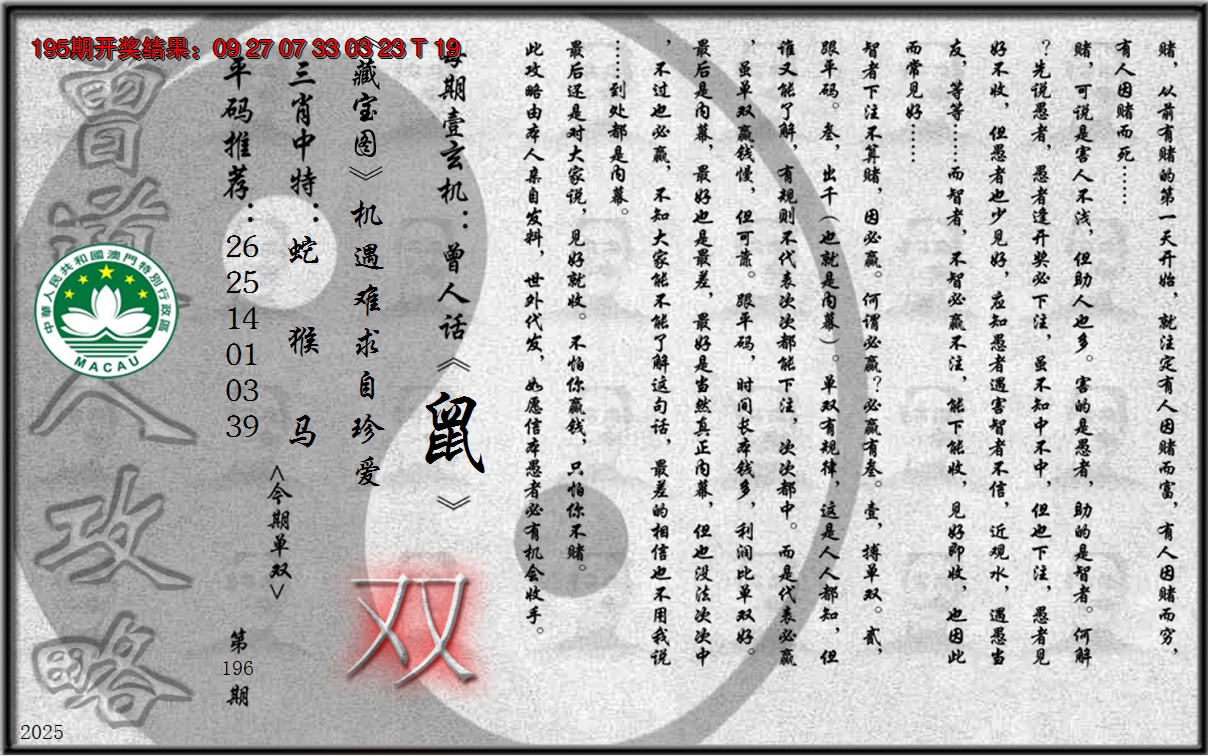 195期开奖结果：09 27 07 33 03 23 T 19
赌，从前有赌的第一天开始，就注定有人因赌而富，有人因赌而穷，
有人因赌而死……
赌，可说是害人不浅，但助人也多。害的是愚者，助的是智者。何解
？先说愚者，愚者逢开奖必下注，虽不知中不中，但也下注，愚者见
好不收，但愚者也少见好，应知愚者遇害智者不信，近观水，遇愚当
友，等等……而智者，不智必赢不注，能下能收，见好即收，也因此
而常见好……
智者下注不算赌，因必赢。何谓必赢？必赢有叁。壹，搏单双。贰，
跟平码。叁，出千（也就是内幕）。单双有规律，这是人人都知，但
谁又能了解，有规则不代表次次都能下注，次次都中。而是代表必赢
，虽单双赢钱慢，但可靠。跟平码，时间长本钱多，利润比单双好。
最后是内幕，最好也是最差，最好是当然真正内幕，但也没法次次中
，不过也必赢，不知大家能不能了解这句话，最差的相信也不用我说
……到处都是内幕。
最后还是对大家说，见好就收。不怕你赢钱，只怕你不赌。
此攻略由本人亲自发料，世外代发，如愿信本愚者必有机会收手。
每期壹玄机：曾人话《鼠》
《藏宝图》机遇难求自珍爱
双
三肖中特：蛇 猴 马
<今期单双>
平码推荐：26 25 14 01 03 39
第196期
曾道人攻略
中華人民共和國澳門特別行政區
MACAU
2025